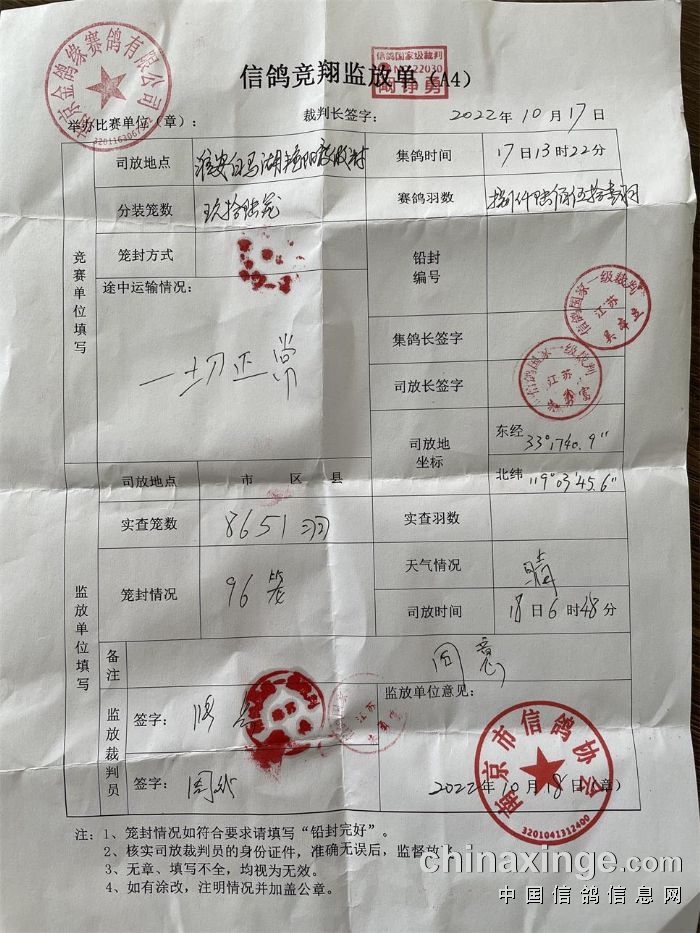 信鸽竞翔监放单（A4）
信鸽国家级裁判
NO.22030
举办比赛单位（章）：
裁判长签字：
2022年10月17日
京金鸽缘赛鸽有限公司
竞赛单位填写
司放地点
淮安白马湖
集鸽时间
17日13时22分
分装笼数
玖拾陆笼
赛鸽羽数
笼封方式
铅封编号
途中运输情况：
一切正常
集鸽长签字
信鸽国家一级裁判
江苏
司放长签字
信鸽国家一级裁判
江苏
司放地坐标
东经
33°17'40.9"
北纬
119°03'45.6"
监放单位填写
司放地点
市 区 县
实查笼数
8651羽
实查羽数
笼封情况
96笼
天气情况
晴
司放时间
18日6时48分
备注
同意
监放裁判员
签字：
签字：
江苏
监放单位意见：
2022年10月18日（章）
南京市信鸽协会
3201041312400
注：1、笼封情况如符合要求请填写“铅封完好”。
2、核实司放裁判员的身份证件，准确无误后，监督放上。
3、无章、填写不全，均视为无效。
4、如有涂改，注明情况并加盖公章。
chinaxinge.com
中国信鸽信息网